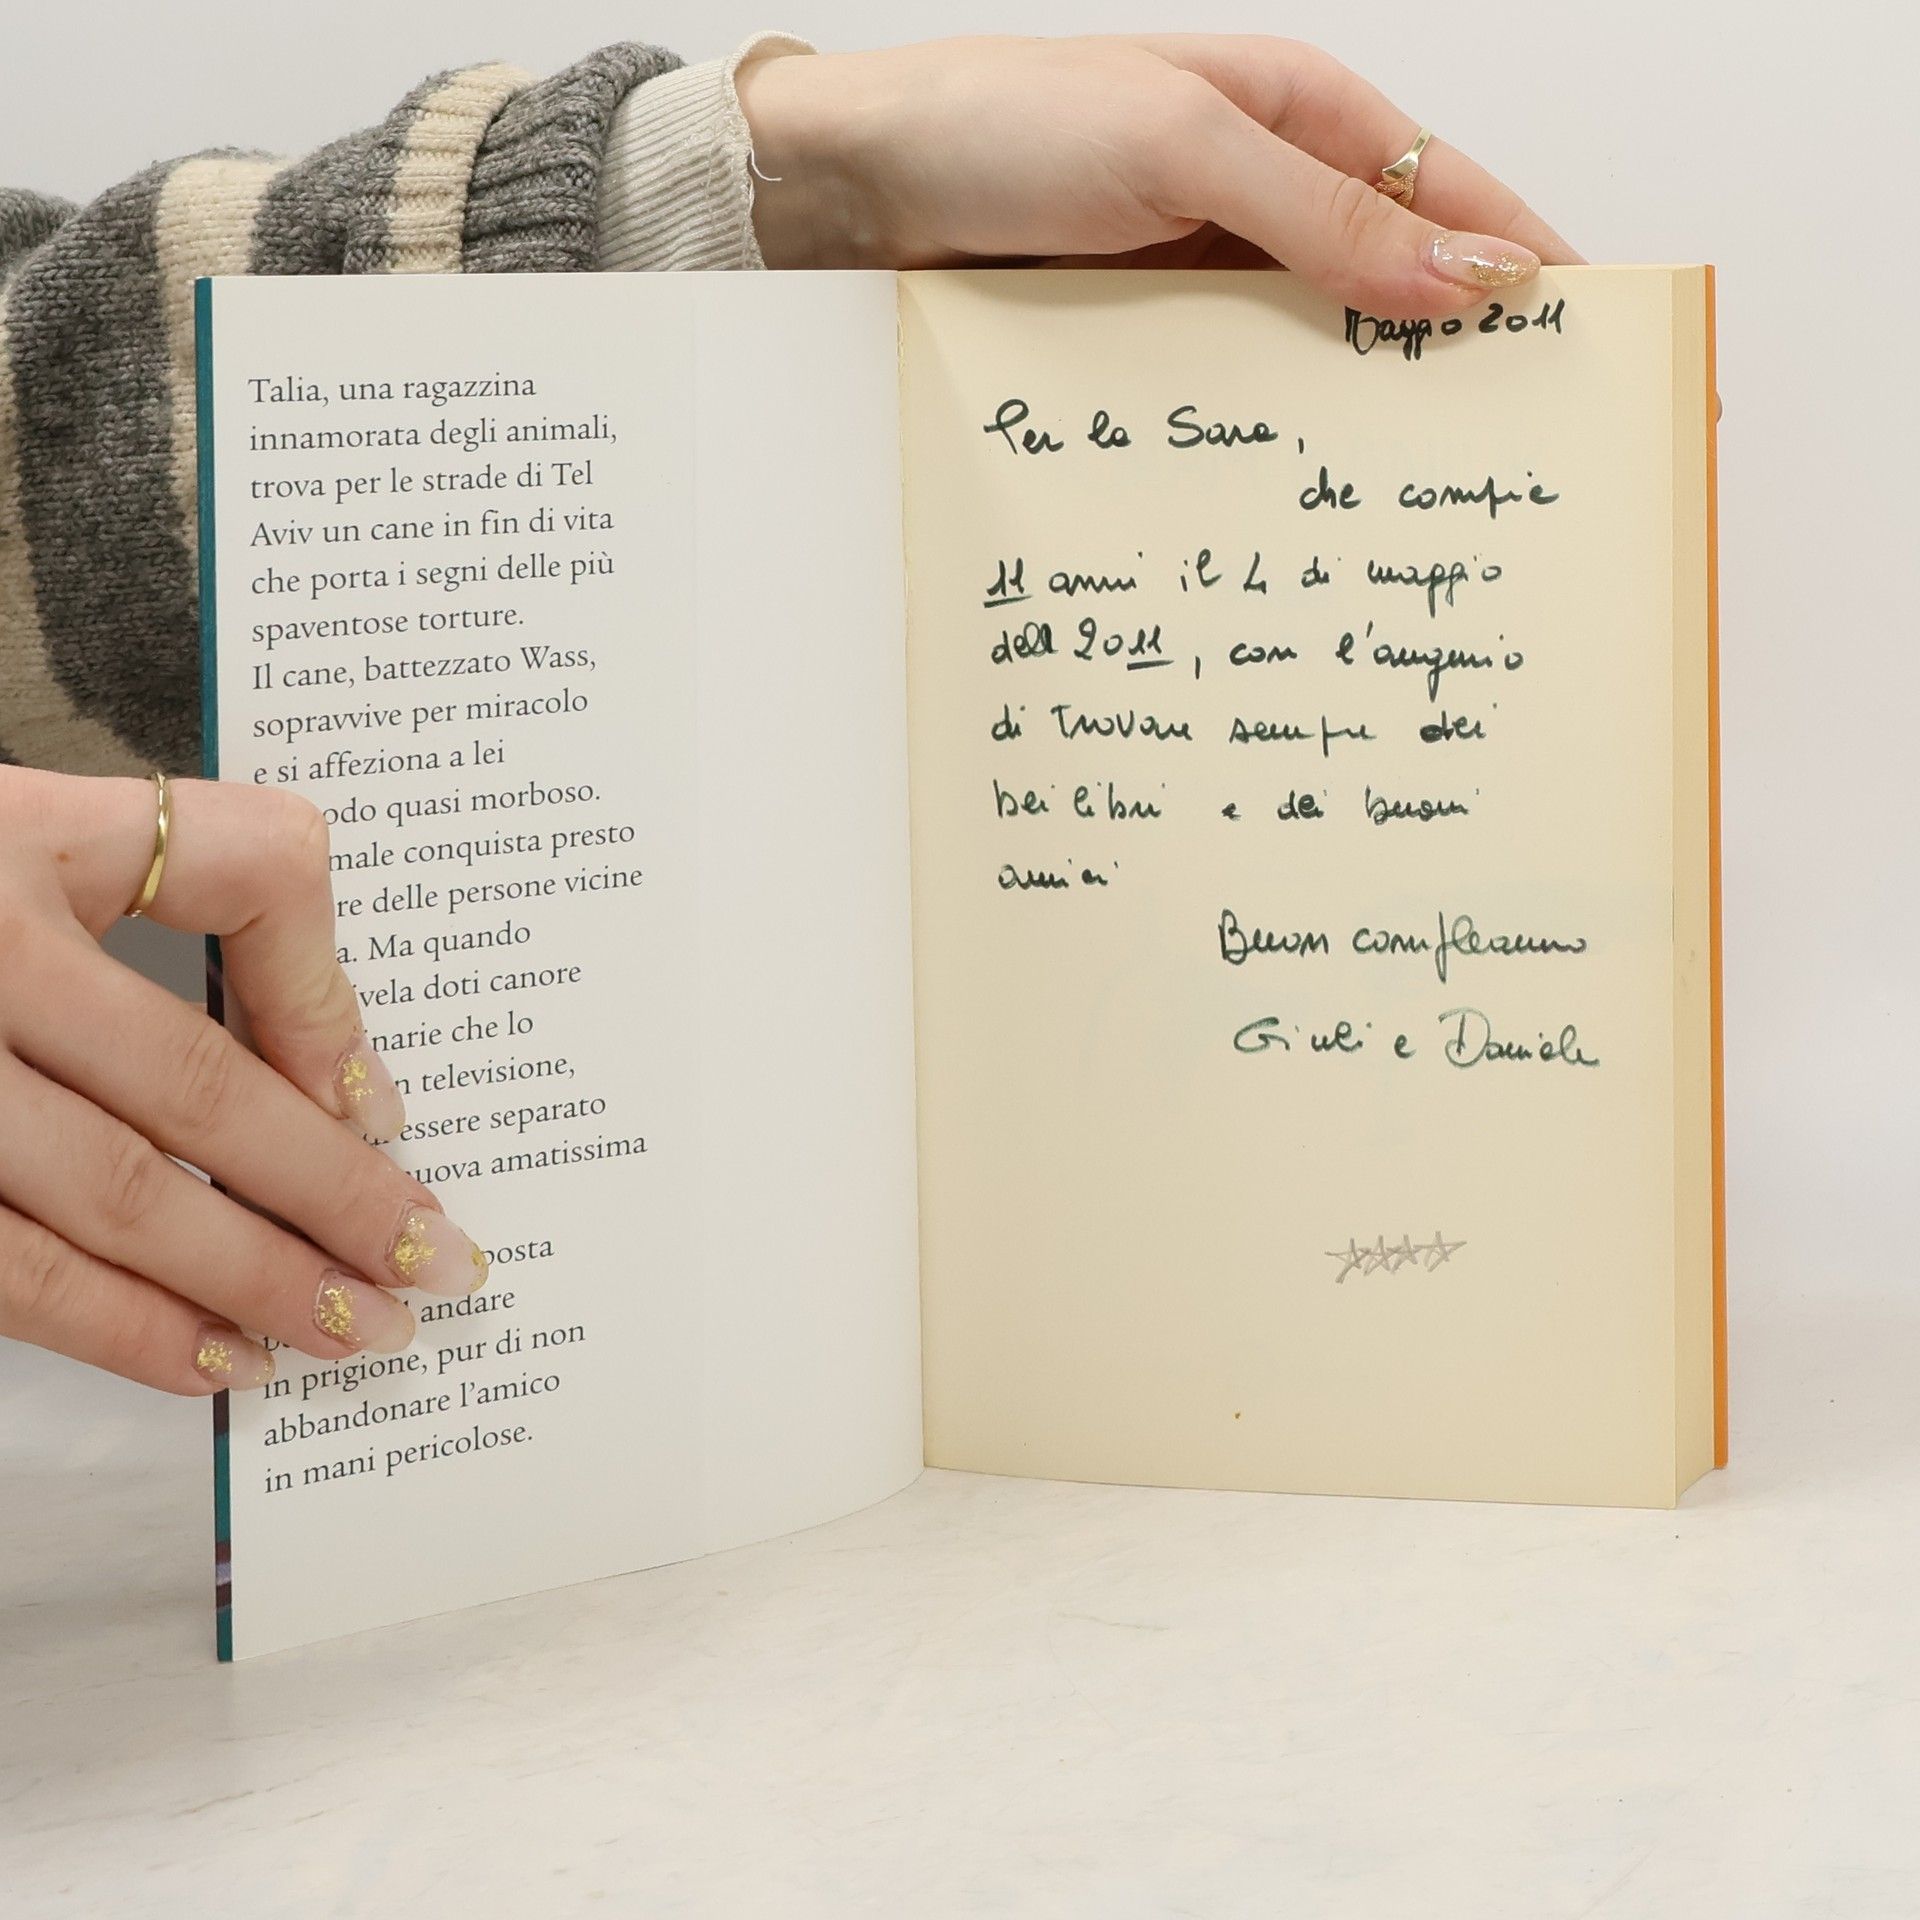 Talia, una ragazzina
innamorata degli animali,
trova per le strade di Tel
Aviv un cane in fin di vita
che porta i segni delle più
spaventose torture.
Il cane, battezzato Wass,
sopravvive per miracolo
e si affeziona a lei
odo quasi morboso.
male conquista presto
re delle persone vicine
a. Ma quando
ivela doti canore
inarie che lo
n televisione,
di essere separato
nuova amatissima
posta
andare
in prigione, pur di non
abbandonare l'amico
in mani pericolose.
Maggio 2011
Per la Sara,
che compie
11 anni il 4 di maggio
del 2011, con l'augurio
di trovare sempre dei
bei libri e dei buoni
amici
Buon compleanno
Giuli e Daniele